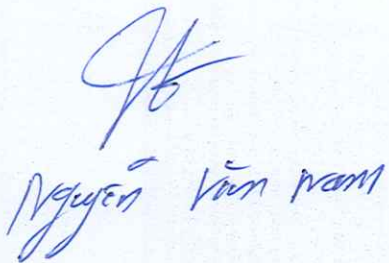 Nguyễn Văn Nam